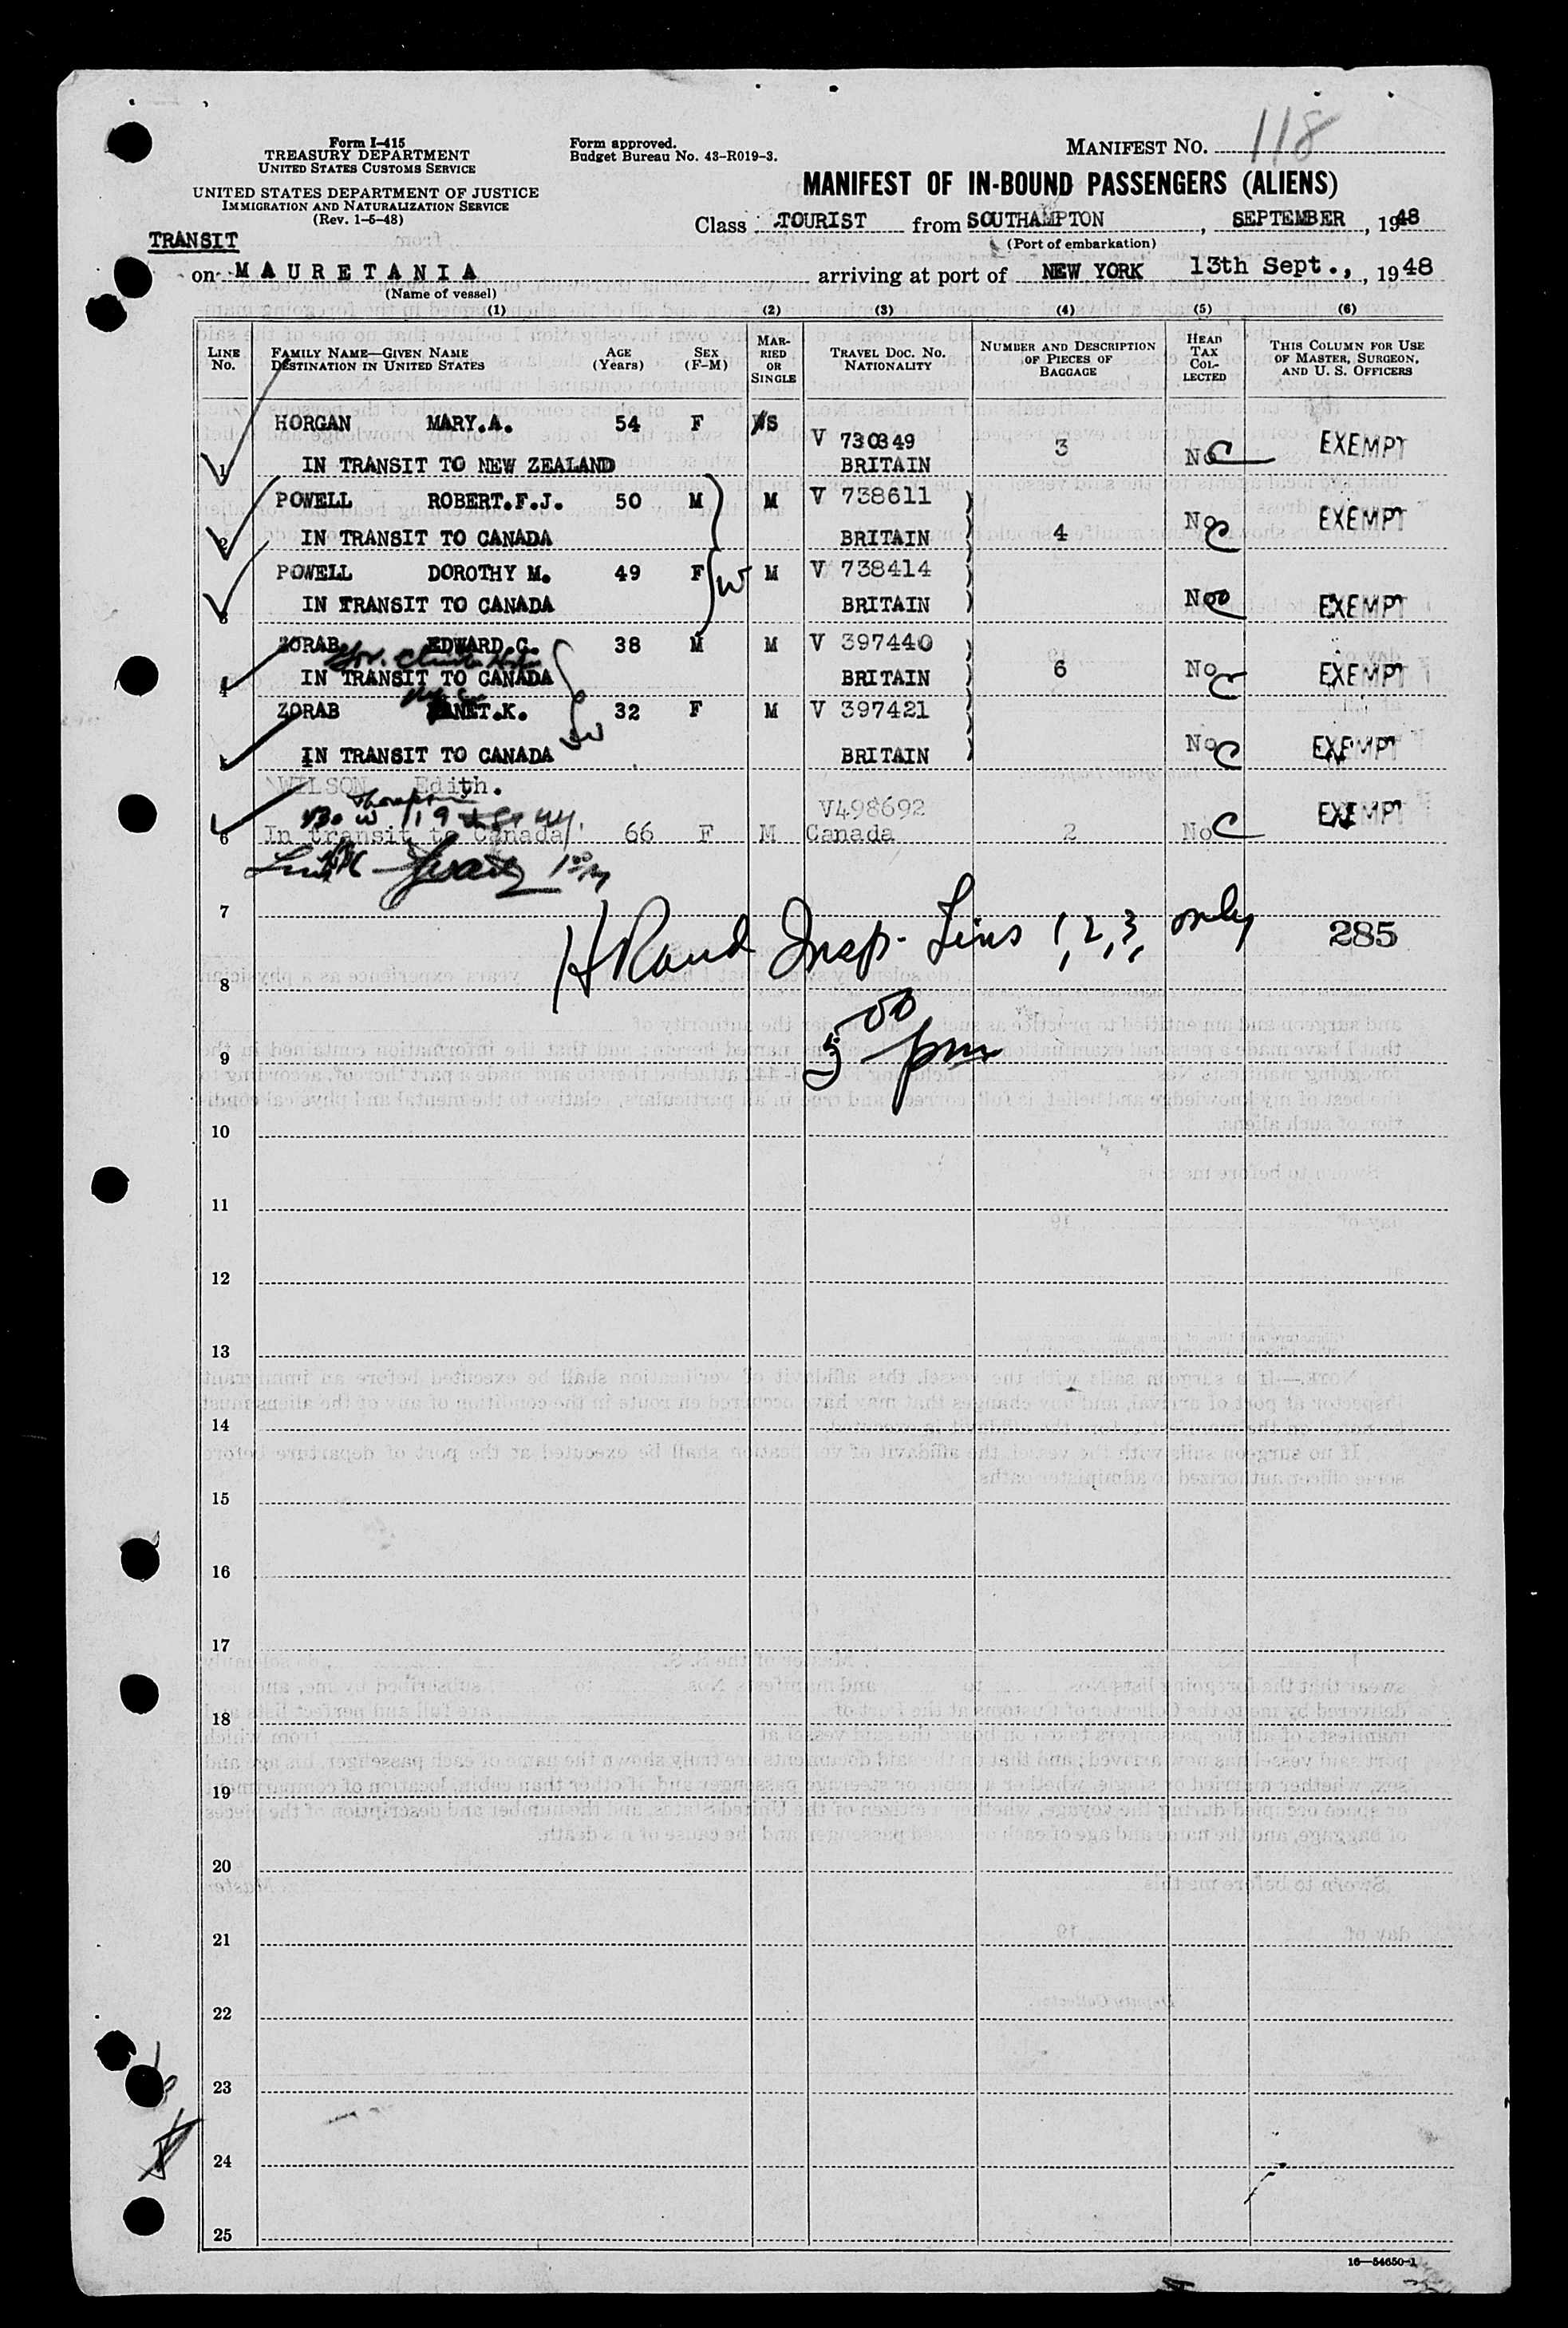 118
Form I-415
TREASURY DEPARTMENT
UNITED STATES CUSTOMS SERVICE
Form approved.
Budget Bureau No. 43-R019-3.
MANIFEST NO.
UNITED STATES DEPARTMENT OF JUSTICE
IMMIGRATION AND NATURALIZATION SERVICE
(Rev. 1-5-48)
MANIFEST OF IN-BOUND PASSENGERS (ALIENS)
Class TOURIST from SOUTHAMPTON, SEPTEMBER, 1948
(Port of embarkation)
TRANSIT
on MAURETANIA arriving at port of NEW YORK 13th Sept., 1948
(Name of vessel)
(1) (2) (3) (4) (5) (6)
LINE No. FAMILY NAME—GIVEN NAME DESTINATION IN UNITED STATES AGE (Years) SEX (F-M) MARRIED OR SINGLE TRAVEL DOC. NO. NATIONALITY NUMBER AND DESCRIPTION OF PIECES OF BAGGAGE HEAD TAX COLLECTED THIS COLUMN FOR USE OF MASTER, SURGEON, AND U. S. OFFICERS
HORGAN MARY.A. 54 F S V 730349 3 No EXEMPT
1 IN TRANSIT TO NEW ZEALAND BRITAIN
POWELL ROBERT.F.J. 50 M M V 738611 No EXEMPT
2 IN TRANSIT TO CANADA BRITAIN 4
POWELL DOROTHY M. 49 F W M V 738414
3 IN TRANSIT TO CANADA BRITAIN No EXEMPT
ZORAB EDWARD.C. 38 M M V 397440
4 IN TRANSIT TO CANADA BRITAIN 6 No EXEMPT
ZORAB JANET.K. 32 F M V 397421
5 IN TRANSIT TO CANADA W BRITAIN No EXEMPT
WILSON Edith. V498692 EXEMPT
6 In transit to Canada 66 F M Canada 2 No
7
H Rand Insp. Lines 1, 2, 3, only 285
8
5 00 pm
9
10
11
12
13
14
15
16
17
18
19
20
21
22
23
24
25
16—54650-1